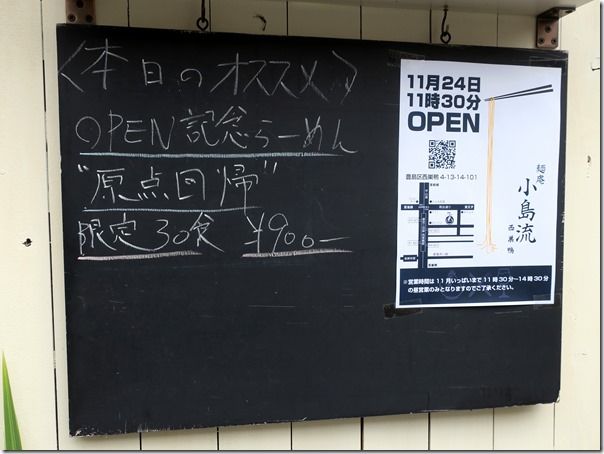 〈本日のオススメ〉
OPEN記念らーめん
"原点回帰"
限定30食 ¥900−
11月24日
11時30分
OPEN
豊島区西巣鴨 4-13-14-101
麺庵
小島流
西巣鴨
※営業時間は11月いっぱいまで11時30分〜14時30分
の昼営業のみとなりますのでご了承ください。